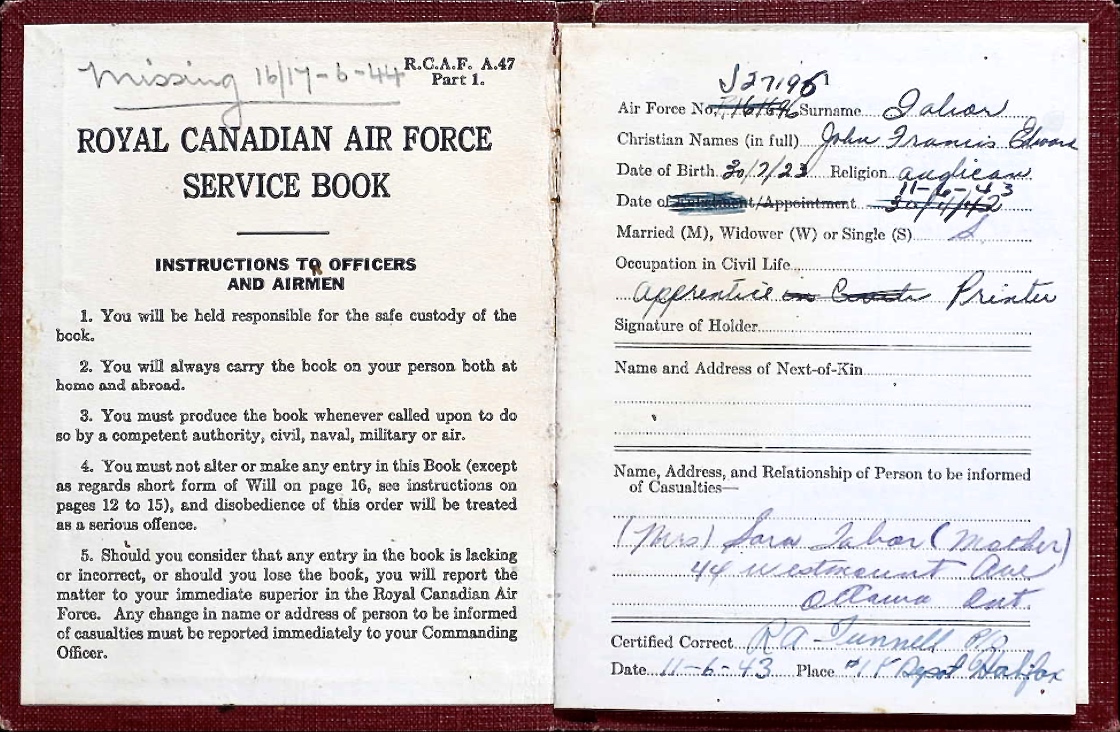 Missing 16/17-6-44
R.C.A.F. A.47
Part 1.
ROYAL CANADIAN AIR FORCE
SERVICE BOOK
INSTRUCTIONS TO OFFICERS
AND AIRMEN
1. You will be held responsible for the safe custody of the
book.
2. You will always carry the book on your person both at
home and abroad.
3. You must produce the book whenever called upon to do
so by a competent authority, civil, naval, military or air.
4. You must not alter or make any entry in this Book (except
as regards short form of Will on page 16, see instructions on
pages 12 to 15), and disobedience of this order will be treated
as a serious offence.
5. Should you consider that any entry in the book is lacking
or incorrect, or should you lose the book, you will report the
matter to your immediate superior in the Royal Canadian Air
Force. Any change in name or address of person to be informed
of casualties must be reported immediately to your Commanding
Officer.
J27195
Air Force No. Surname Tabor
Christian Names (in full) John Francis Edward
Date of Birth 30/7/23 Religion anglican
11-6-43
Date of Enlistment/Appointment
Married (M), Widower (W) or Single (S) S
Occupation in Civil Life
Apprentice Printer
Signature of Holder
Name and Address of Next-of-Kin
Name, Address, and Relationship of Person to be informed
of Casualties—
(Mrs) Sara Tabor (Mother)
44 Westmount Ave
Ottawa Ont.
Certified Correct R A Tunnell P/O
Date 11-6-43 Place Depot Halifax